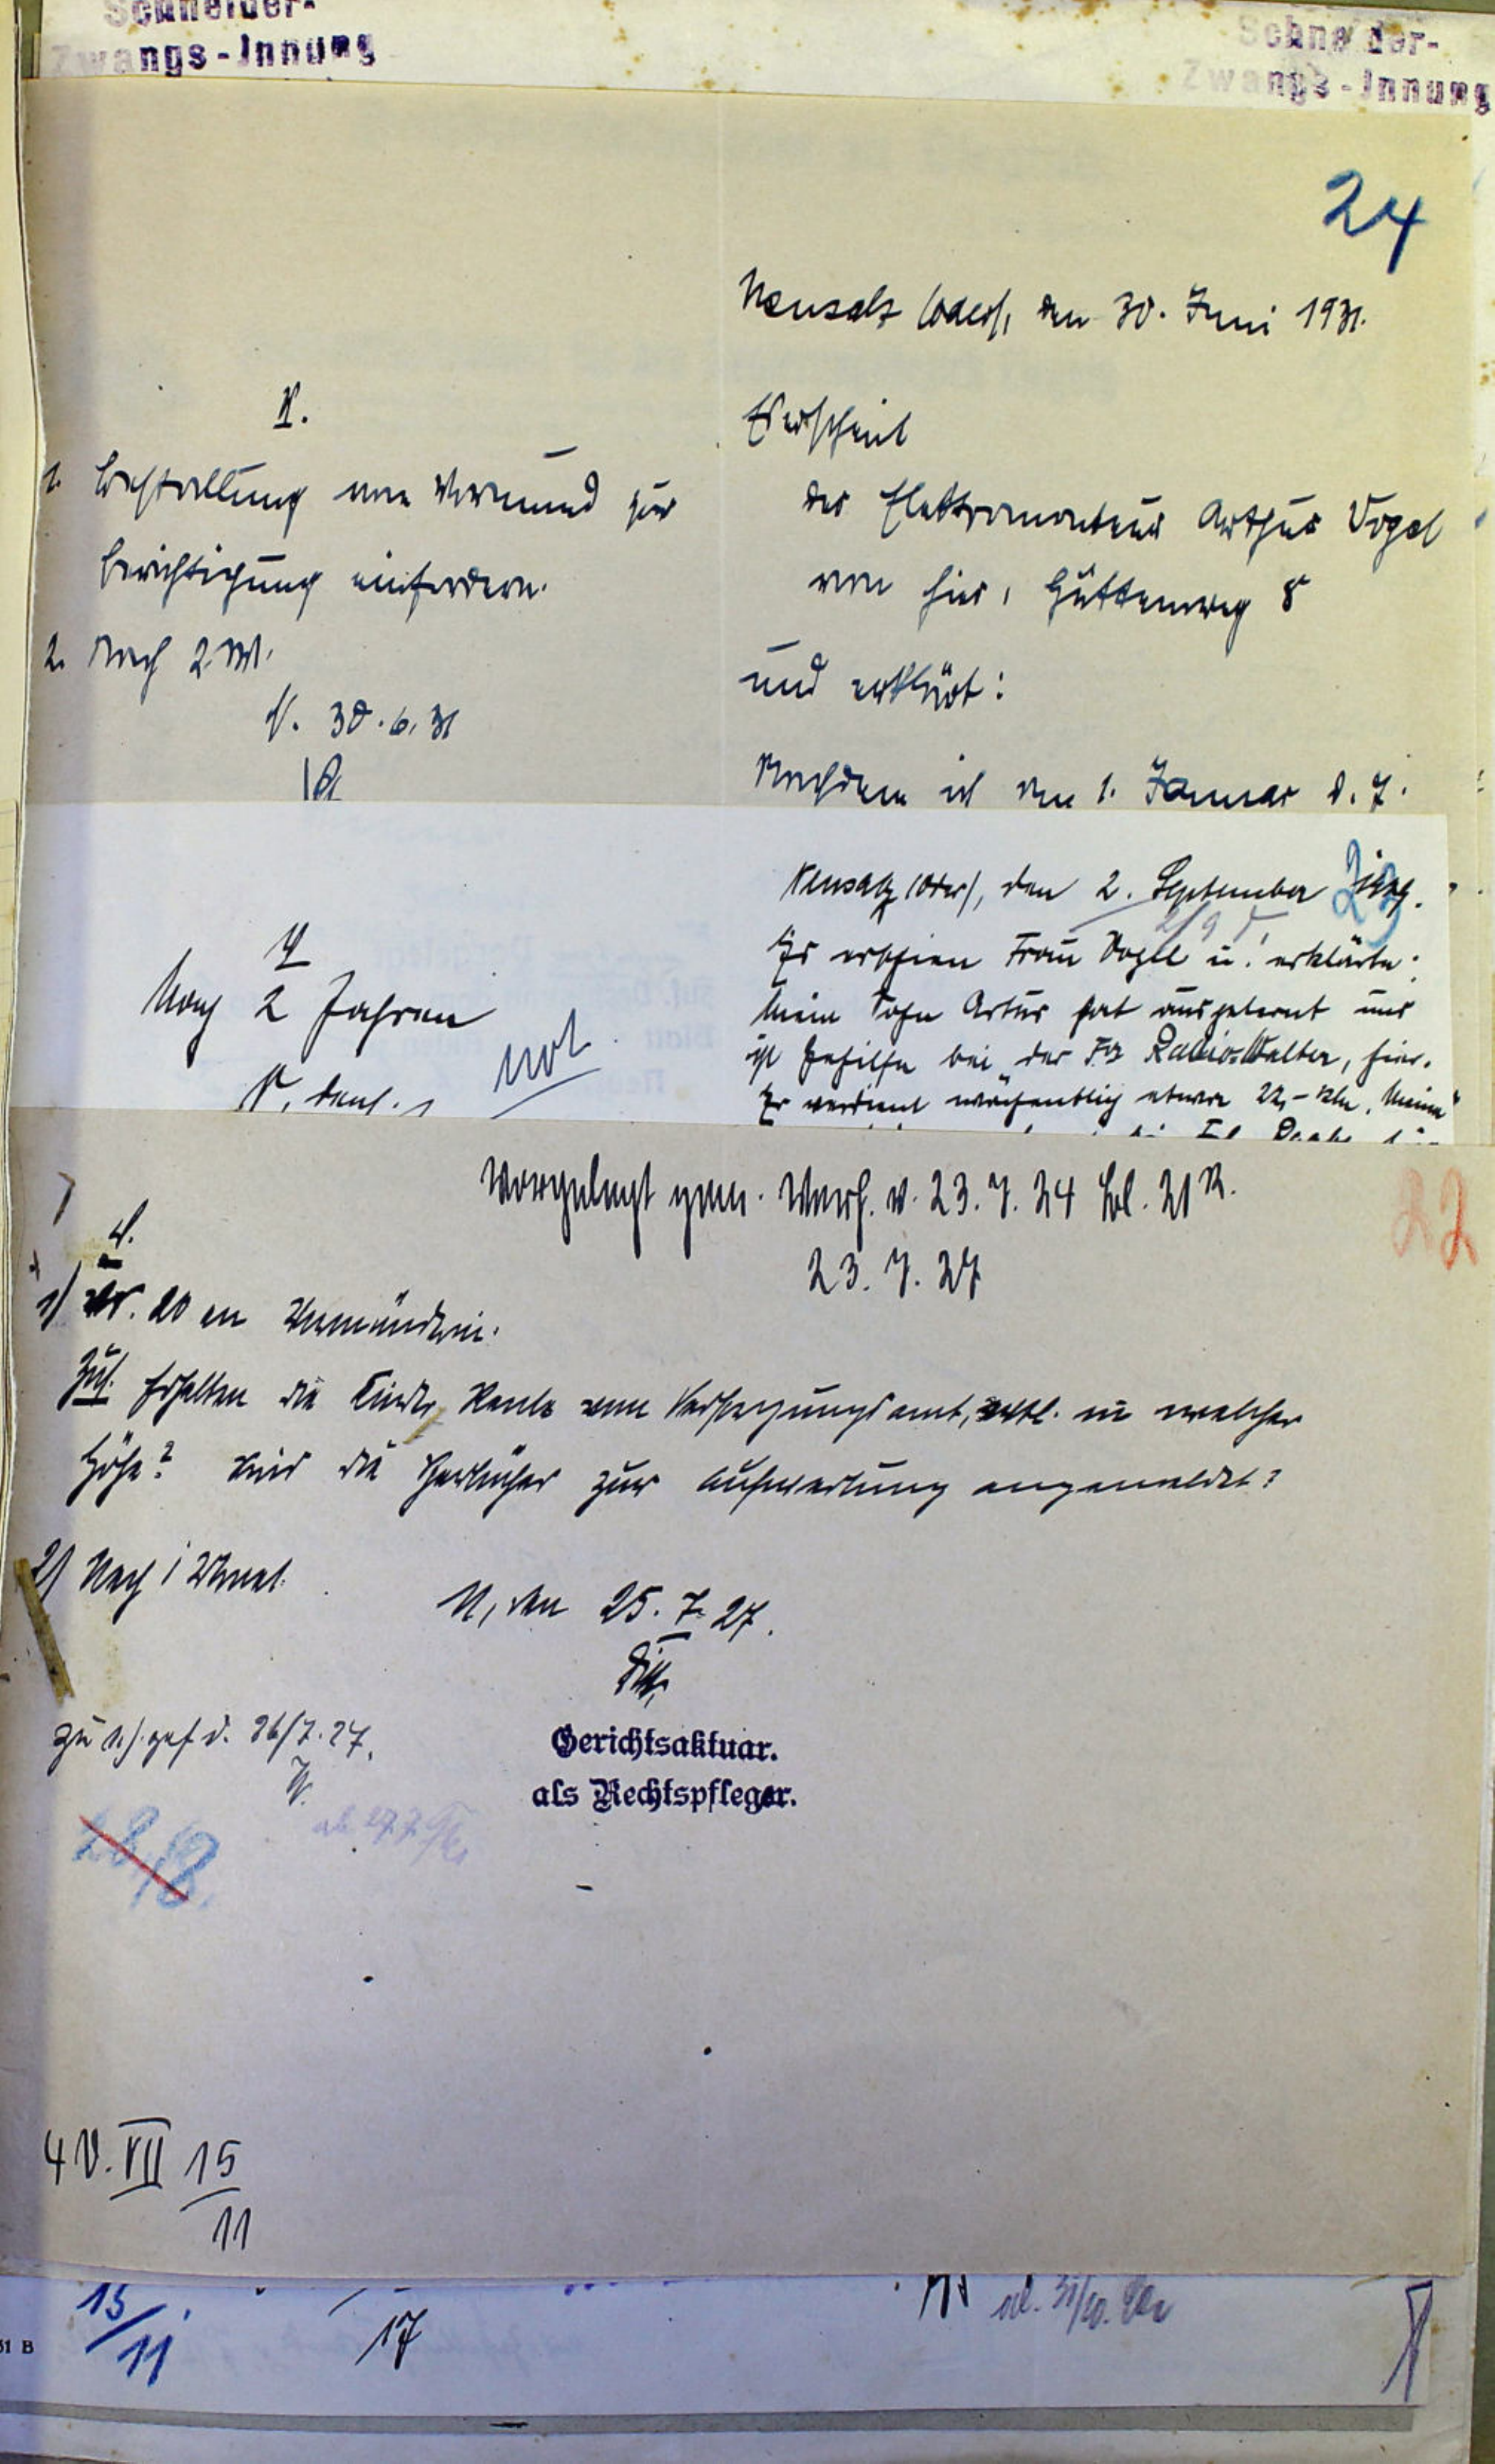 Schneider-
Zwangs-Innung
Schneider-
Zwangs-Innung
24
Neusalz (Oder), den 30. Juni 1931.
V.
1. Bestallung vom Vormund zur
Berichtigung einfordern.
2. Nach 2 W.
N. 30.6.31
Erscheint
der Elektromonteur Arthur Vogel
von hier, Hüttenweg 8
und erklärt:
Nachdem ich am 1. Januar d. J.
23
Neusalz (Oder), den 2. September
Es erschien Frau Vogel u. erklärte:
Mein Sohn Artur hat ausgelernt und
ist Gehilfe bei der Fa Radio-Walter, hier.
Er verdient wöchentlich etwa 22,- RM. Meine
V
Nach 2 Jahren
not
22
Vorgelegt gem. Verf. v. 23.7.24 Bl. 21 R.
23.7.27
V.
1) 20 an Vormünderin.
Zus. Erhalten die Kinder Rente vom Versorgungsamt, evtl. in welcher
Höhe? Sind die Sparbücher zur Aufwertung angemeldet?
2) Nach 1 Monat.
N, den 25.7.27.
Gerichtsaktuar.
als Rechtspfleger.
zu 1) gef. d. 26/7.27.
28/8.
ab 27.7.
4 V. VII 15
11
15/11
17
31 B